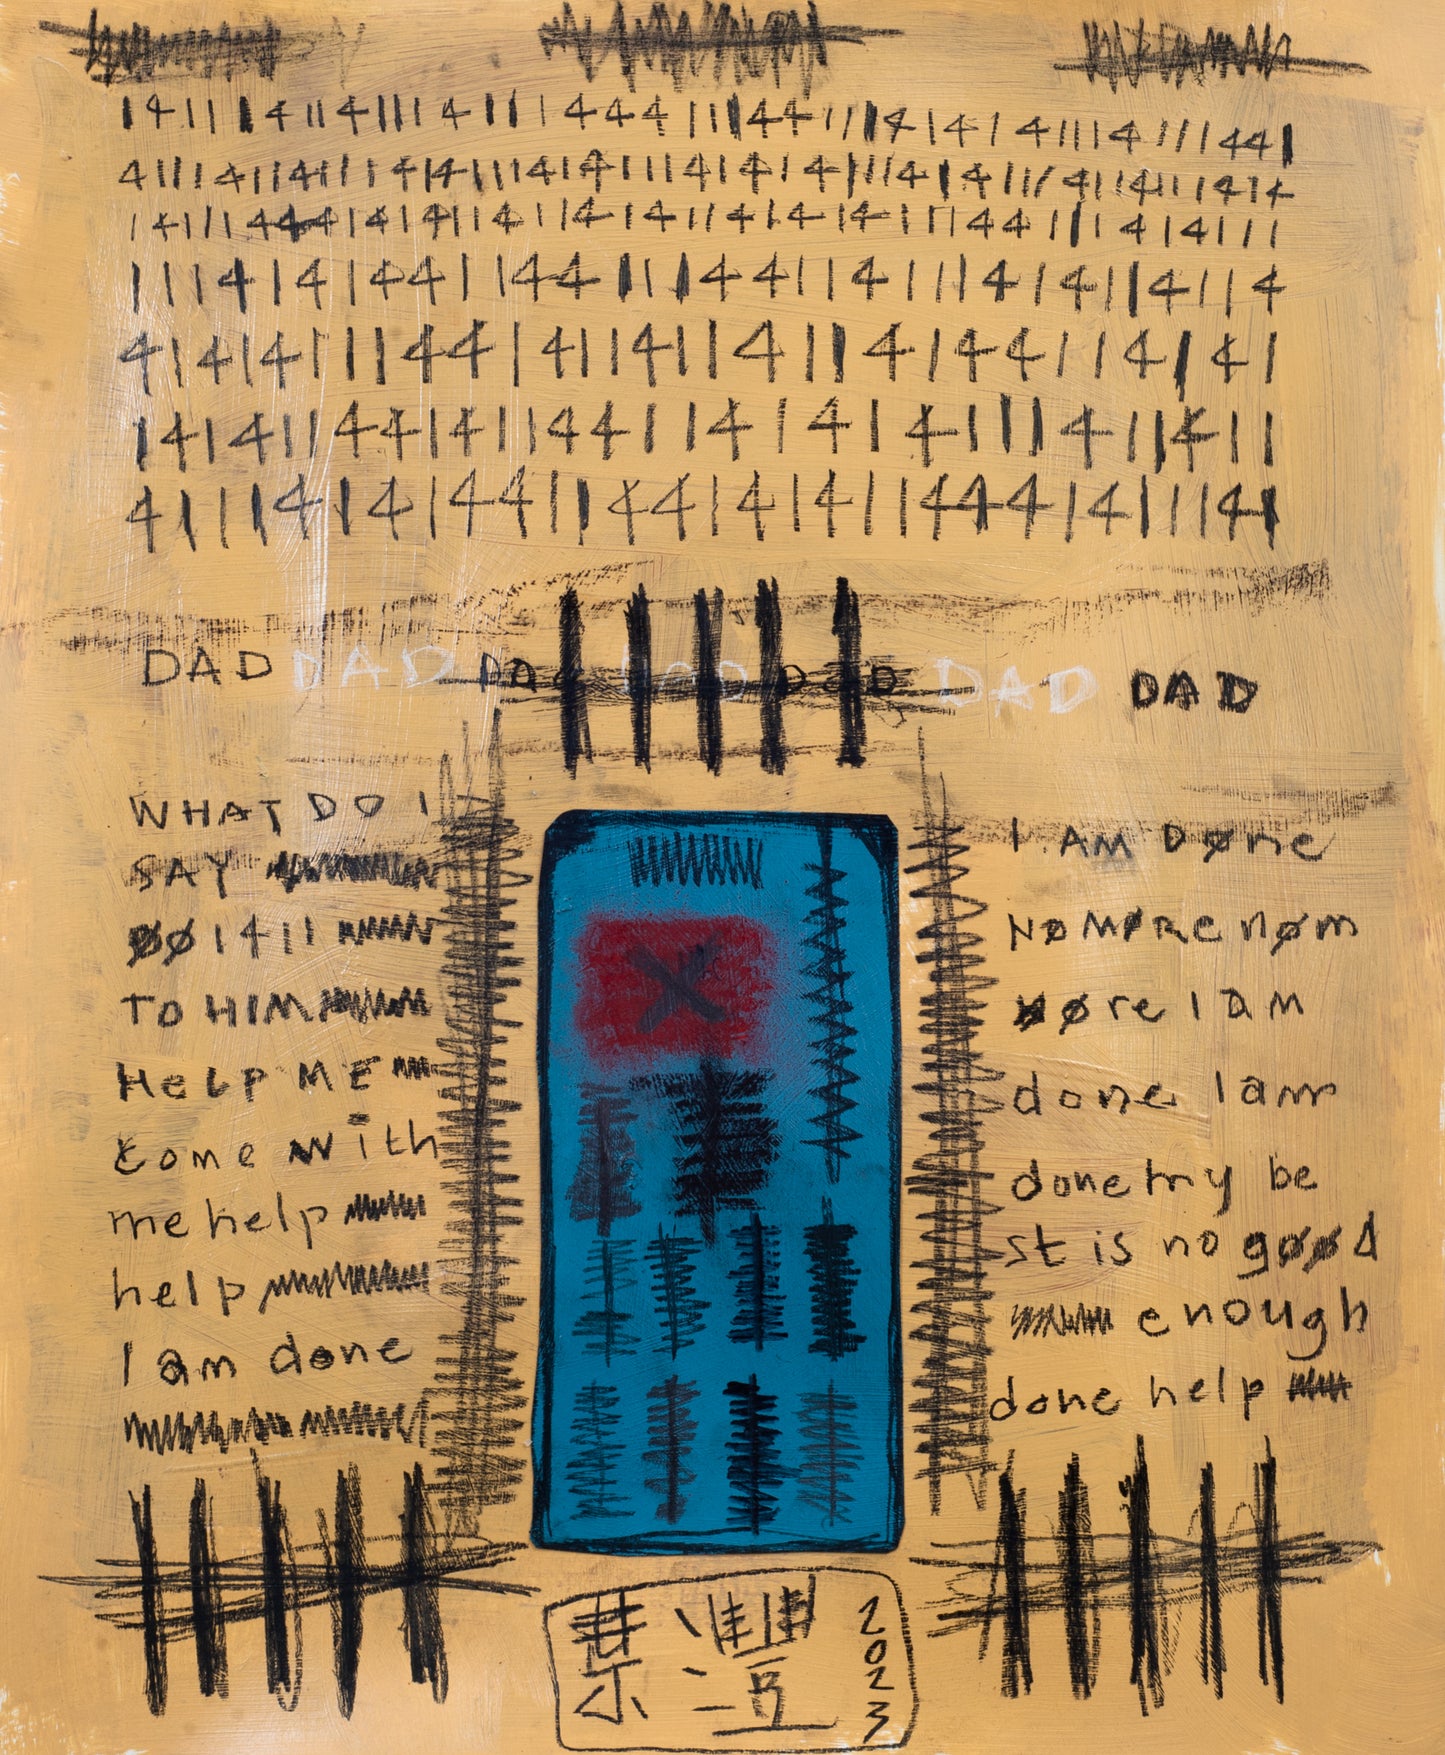 1411141141111411144411144111414141114111441
4111411411114141114141111414141411141411141141141414
1411144414141141411414114141411114411141411
111414144114411144114111414114114
414141114414114114114144114141
141411441411441141414111411411
411141414411441414114441411141
DAD DAD DAD DAD DAD DAD DAD
WHAT DO I
SAY
ØØ1411
TO HIM
HELP ME
come with
me help
help
I am done
I AM DØne
NØ MØRe nØm
Øre I am
done I am
done my be
st is no gØØd
enough
done help
2023